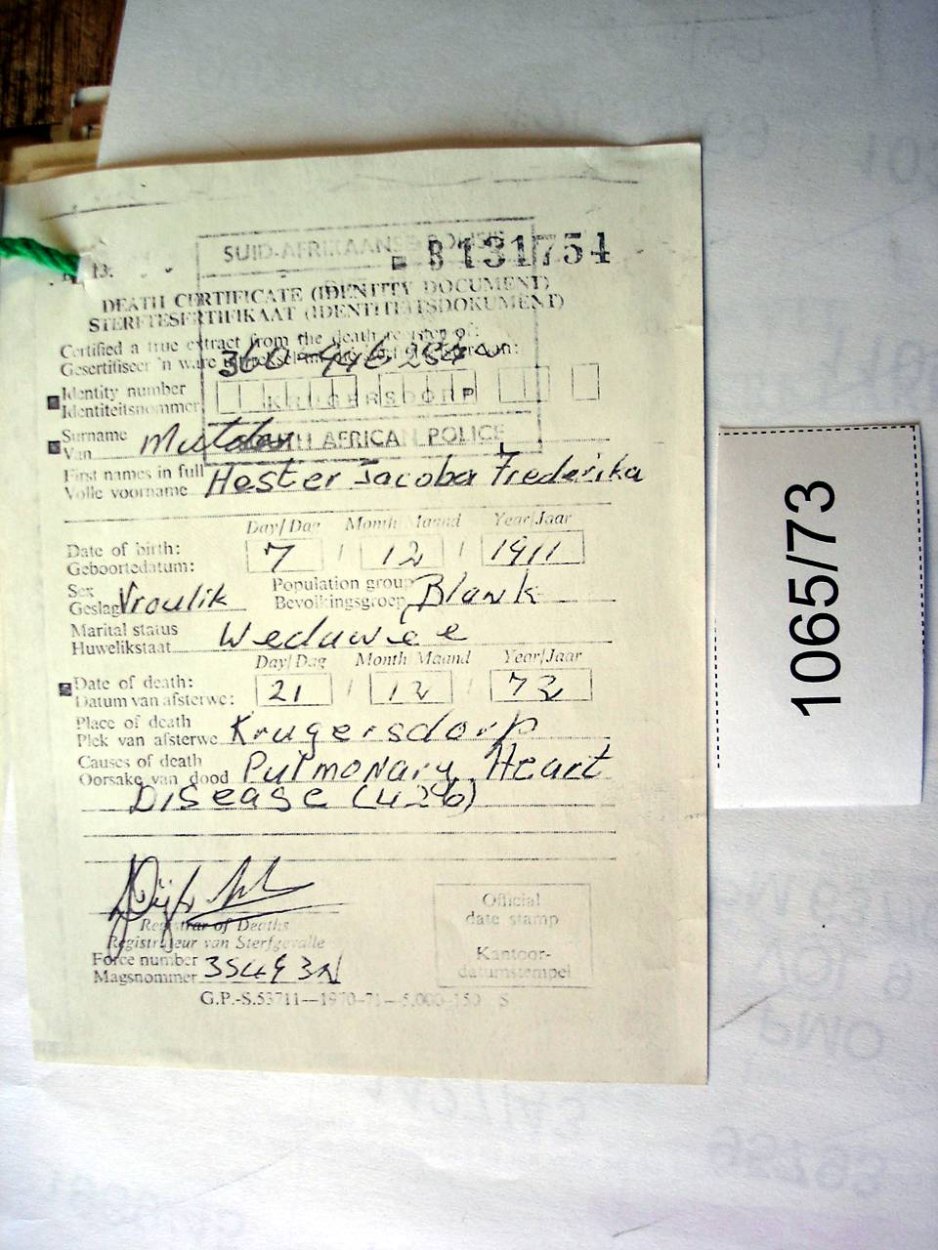 13.
SUID-AFRIKAANSE POLISIE
B 131754
DEATH CERTIFICATE (IDENTITY DOCUMENT)
STERFTESERTIFIKAAT (IDENTITEITSDOKUMENT)
Certified a true extract from the death register of:
Gesertifiseer 'n ware
Identity number
Identiteitsnommer
KRUGERSDORP
Surname
Van
SOUTH AFRICAN POLICE
First names in full
Volle voorname Hester Jacoba Frederika
Day/Dag Month/Maand Year/Jaar
Date of birth:
Geboortedatum: 7 / 12 / 1911
Sex
Geslag Vroulik
Population group
Bevolkingsgroep Blank
Marital status
Huwelikstaat Weduwee
Day/Dag Month/Maand Year/Jaar
Date of death:
Datum van afsterwe: 21 / 12 / 72
Place of death
Plek van afsterwe Krugersdorp
Causes of death
Oorsake van dood Pulmonary Heart
Disease (426)
Registrar of Deaths
Registrateur van Sterfgevalle
Force number
Magsnommer 35493N
Official
date stamp
Kantoor-
datumstempel
G.P.-S.53711—1970-71—5,000-150 S
1065/73